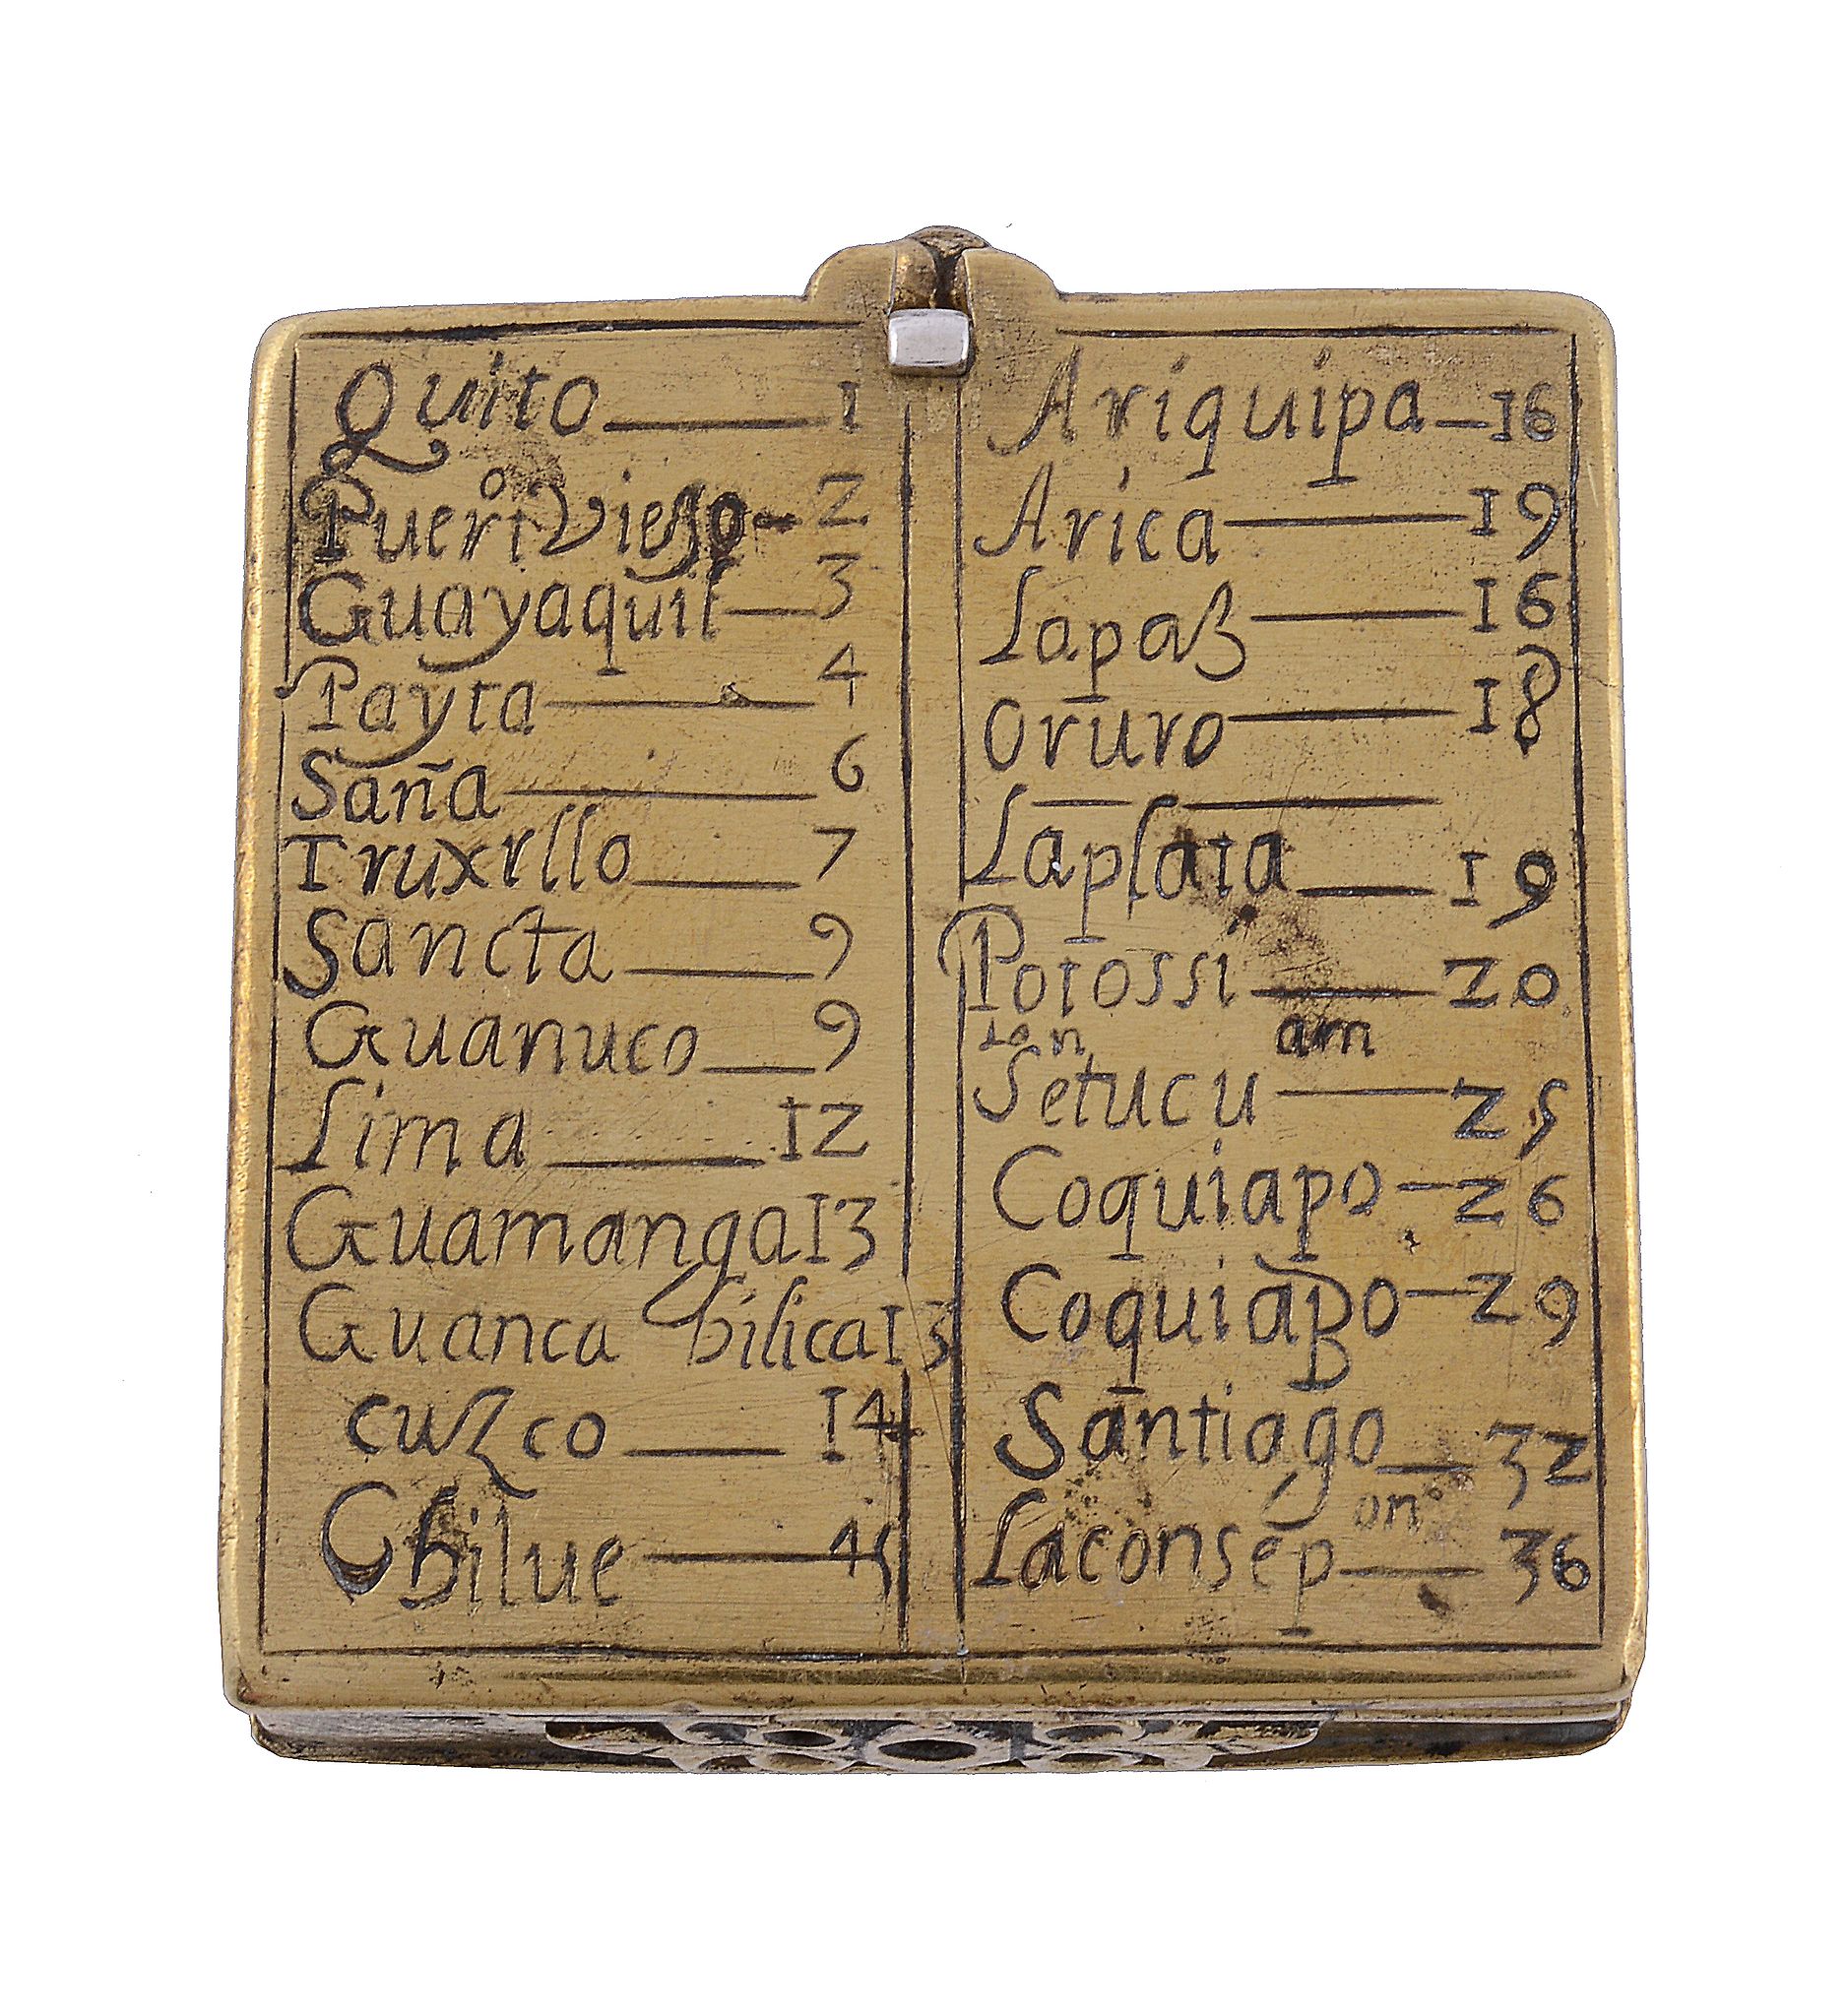 Quito 1
Puerto Viejo 2
Guayaquil 3
Payta 4
Saña 6
Truxillo 7
Sancta 9
Guanuco 9
Lima 12
Guamanga 13
Guanca bilica 13
cuzco 14
Chilue 45
Ariquipa 16
Arica 19
Lapaz 16
Oruro 18
Laplata 19
Potossi 20
am
Setucu 25
Coquiapo 26
Coquiapo 29
Santiago 32
Laconsepon 36